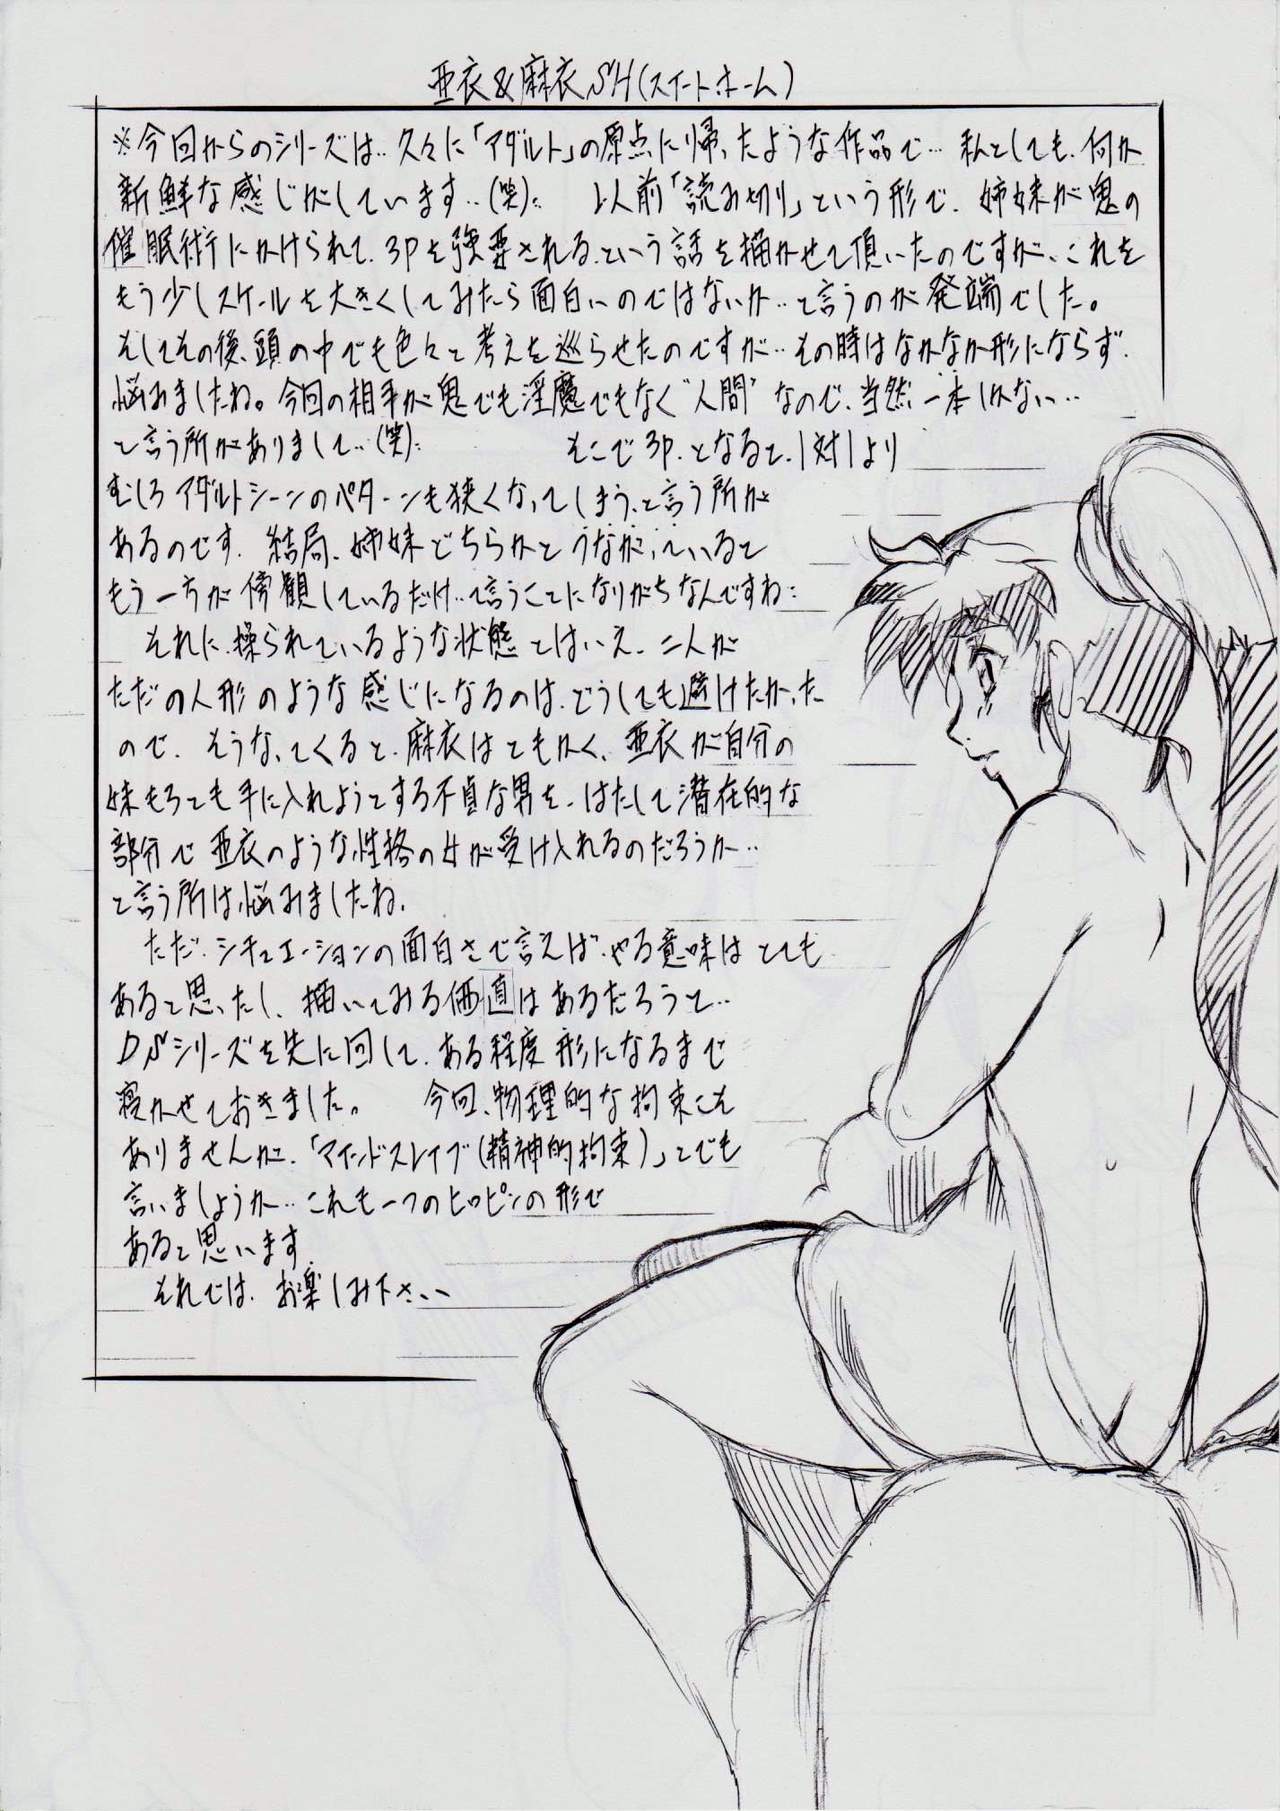 亜衣&麻衣SH(スイート・ホーム)
※今回からのシリーズは‥久々に「アダルト」の原点に帰ったような作品で… 私としても、何か
新鮮な感じがしています‥(笑)‥ 以前「読み切り」という形で、姉妹が鬼の
催眠術にかけられて、3Pを強要される、という話を描かせて頂いたのですが、これを
もう少しスケールを大きくしてみたら面白いのではないか‥と言うのが発端でした。
そしてその後、頭の中でも色々と考えを巡らせたのですが‥その時はなかなか形にならず、
悩みましたね。今回の相手が鬼でも淫魔でもなく“人間”なので、当然一本しかない‥
と言う所がありまして‥(笑)‥ そこで3P、となると、1対1より
むしろアダルトシーンのパターンも狭くなってしまう、と言う所が
あるのです。結局、姉妹どちらかとつながっていると
もう一方が傍観しているだけ‥て言うことになりがちなんですね‥
それに、操られているような状態とはいえ、二人が
ただの人形のような感じになるのは、どうしても避けたかった
ので、そうなってくると、麻衣はともかく、亜衣が自分の
妹もろとも手に入れようとする不貞な男を、はたして潜在的な
部分で亜衣のような性格の女が受け入れるのだろうか‥
と言う所は、悩みましたね、
ただ、シチュエーションの面白さで言えば、やる意味はとても
あると思ったし、描いてみる価値はあるだろうと‥
DSシリーズを先に回して、ある程度形になるまで
寝かせておきました。 今回、物理的な拘束こそ
ありませんが、「マインドスレイブ(精神的拘束)」とでも
言いましょうか‥これも一つのヒロピンの形で
あると思います。
それでは、お楽しみ下さい